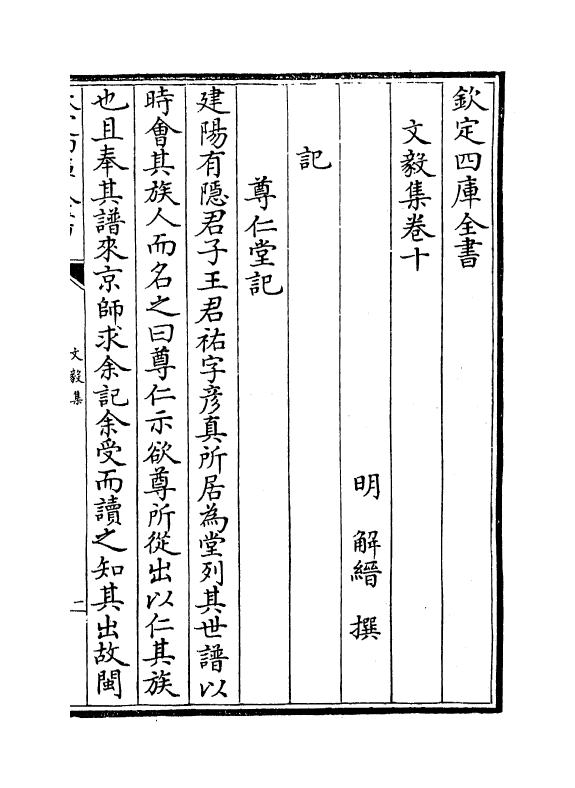 欽定四庫全書
文毅集卷十
明　解縉　撰
記
尊仁堂記
建陽有隱君子王君祐字彦真所居為堂列其世譜以
時會其族人而名之曰尊仁示欲尊所從出以仁其族
也且奉其譜來京師求余記余受而讀之知其出故閩
文毅集